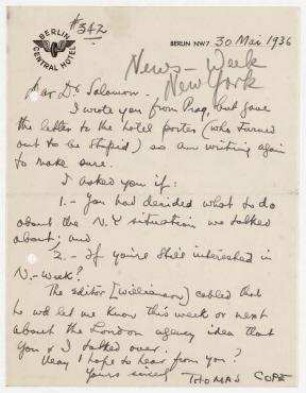 #342
BERLIN
CENTRAL HOTEL
BERLIN NW7 30 Mai 1936
News-Week
New York
Dear Dr Salomon.
I wrote you from Prag, but gave
the letter to the hotel porter (who turned
out to be stupid) so am writing again
to make sure.
I asked you if:
1.- You had decided what to do
about the N.Y situation we talked
about; and
2.- If you're still interested in
N.-Week?
The editor [Williamson] cabled that
he wd let me know this week or next
about the London agency idea that
you & I talked over.
May I hope to hear from you?
Yours sincely THOMAS COPE